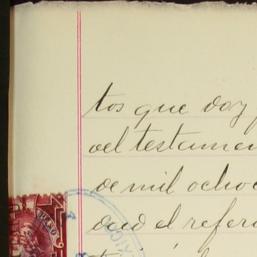 tos que doy
del testamen
de mil ocho
dad el refer